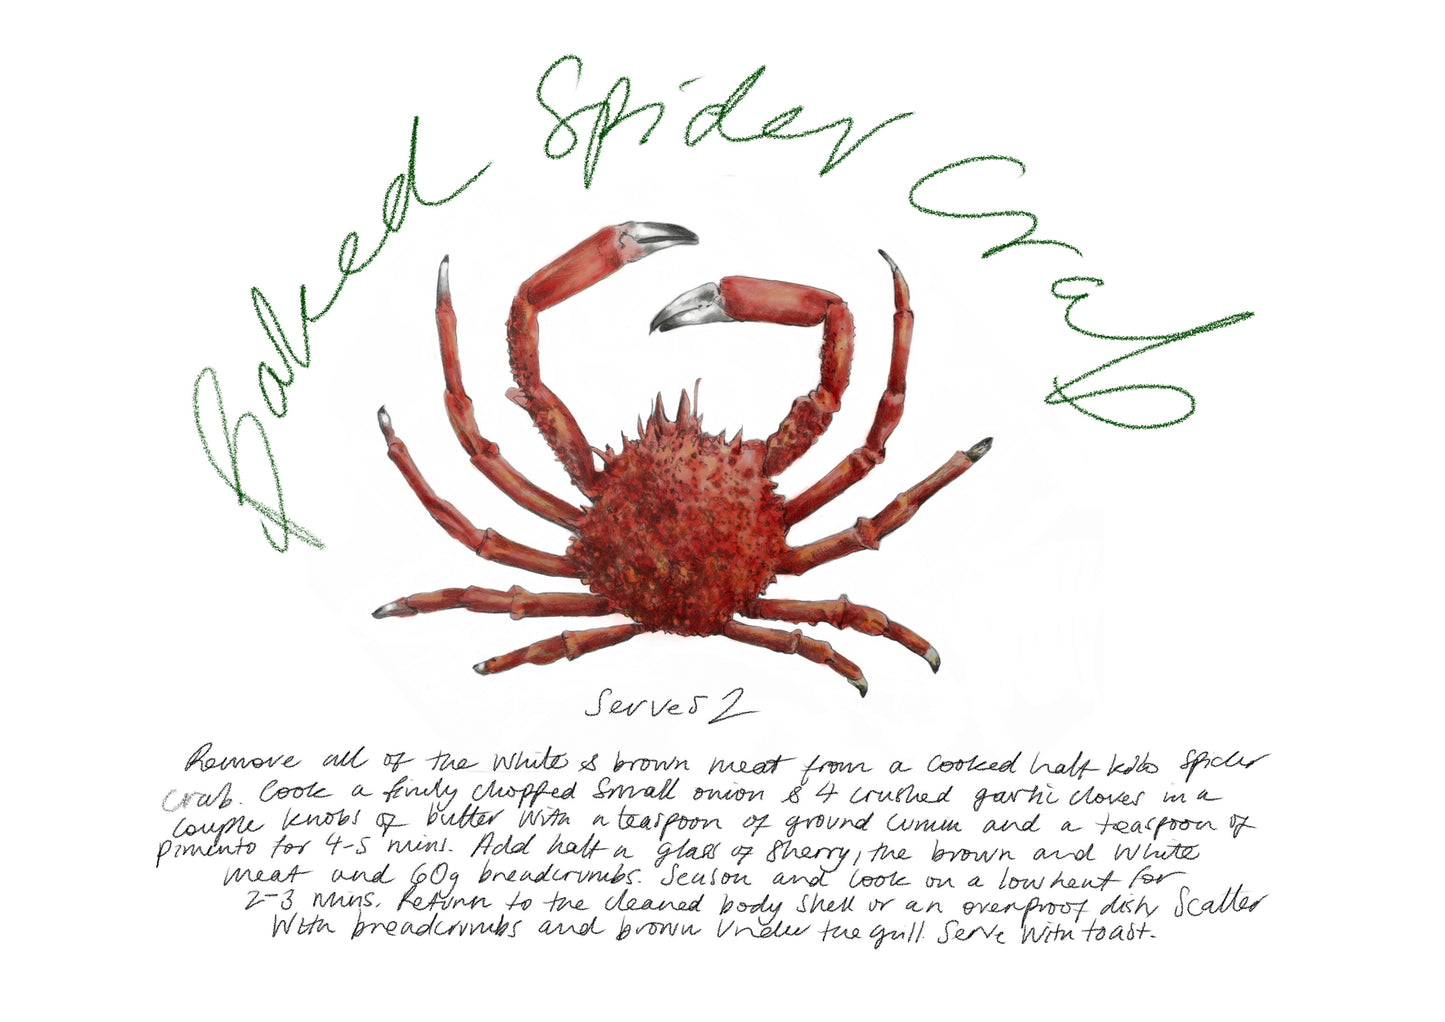 Baked Spider Crab
Serves 2
Remove all of the white & brown meat from a cooked half kilo spider
crab. Cook a finely chopped small onion & 4 crushed garlic cloves in a
couple knobs of butter with a teaspoon of ground cumin and a teaspoon of
pimento for 4-5 mins. Add half a glass of sherry, the brown and white
meat and 60g breadcrumbs. Season and cook on a low heat for
2-3 mins. Return to the cleaned body shell or an ovenproof dish Scatter
with breadcrumbs and brown under the grill. Serve with toast.